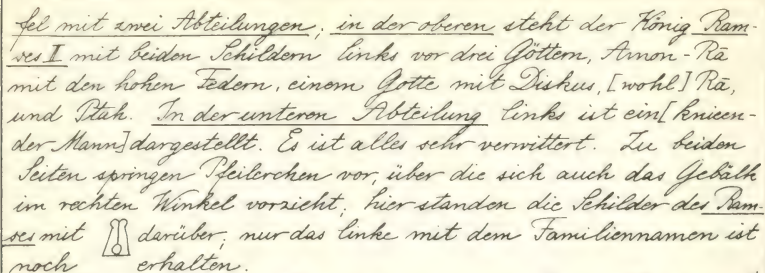 fel mit zwei Abteilungen; in der oberen steht der König Ram-
ses II mit beiden Schildern links vor drei Göttern, Amon-Rā
mit den hohen Federn, einem Gotte mit Diskus, [wohl] Rā,
und Ptah. In der unteren Abteilung links ist ein [knieen-
der Mann] dargestellt. Es ist alles sehr verwittert. Zu beiden
Seiten springen Pfeilerchen vor, über die sich auch das Gebälk
im rechten Winkel vorzieht; hier standen die Schilder des Ram-
ses mit darüber; nur das linke mit dem Familiennamen ist
noch erhalten.